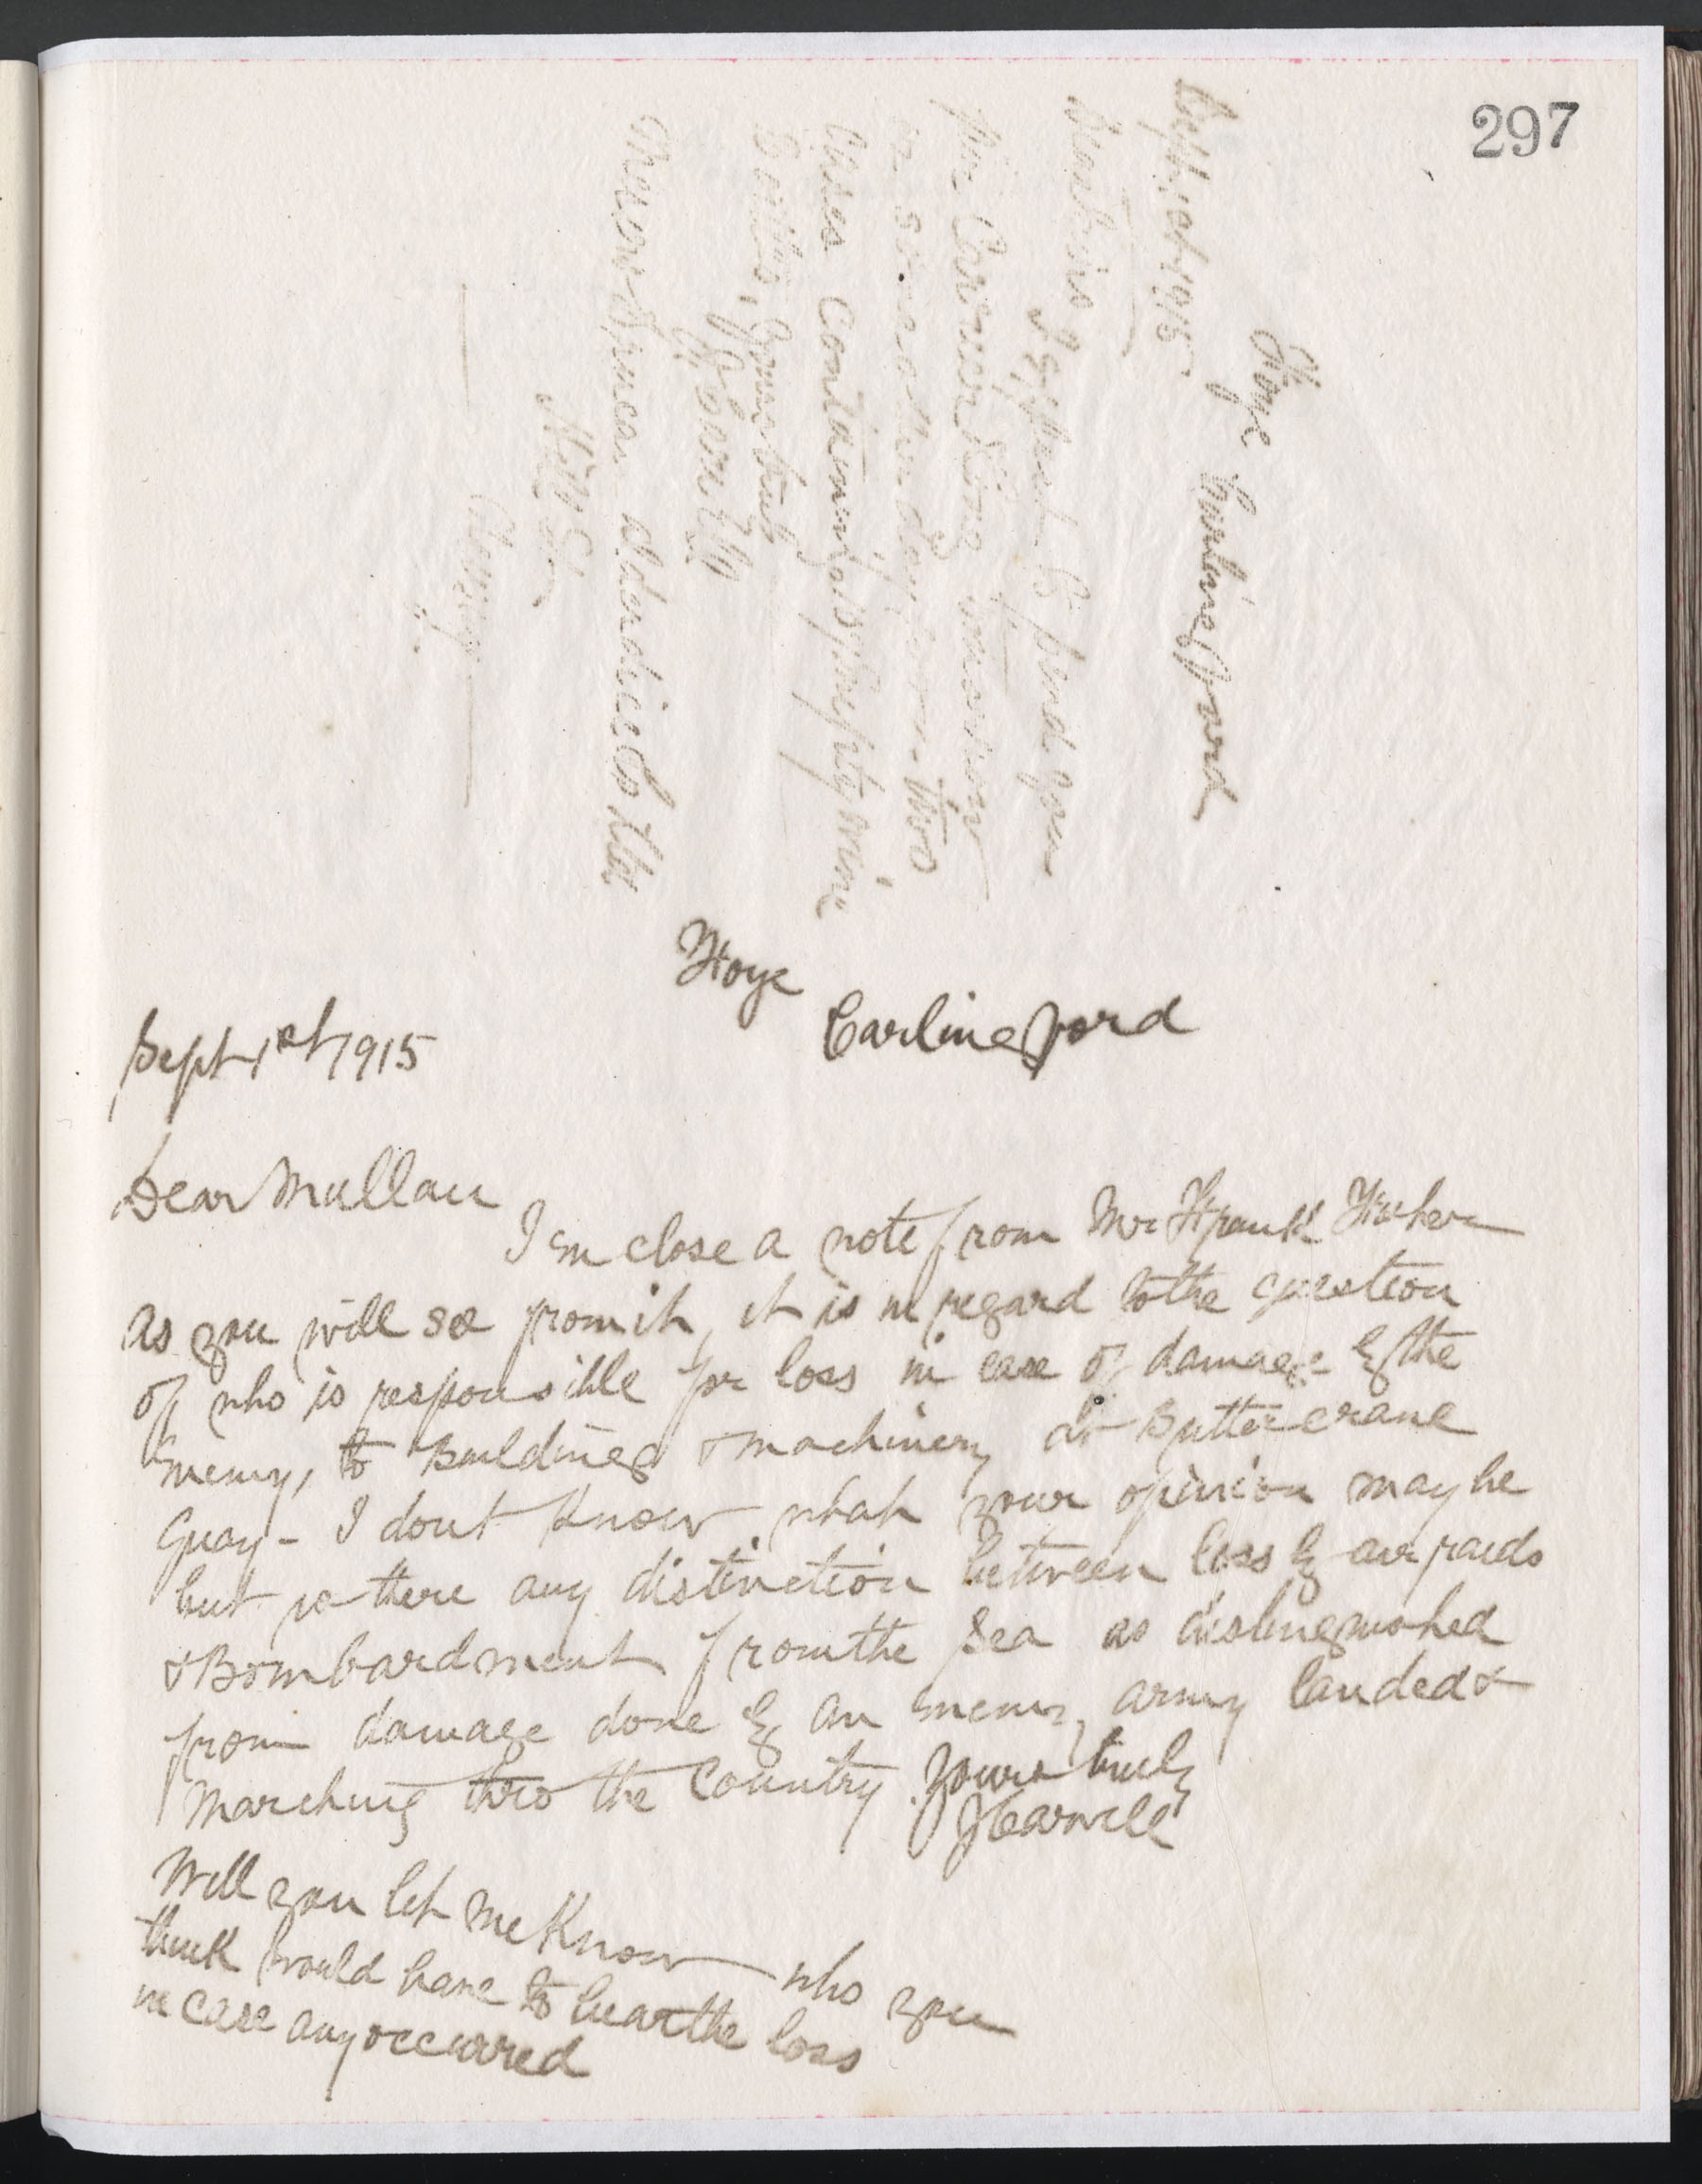 297
Foye
Carlingford
Sept 1st 1915
Dear Sirs
I expect to send you
per Carrier Line tomorrow
or some other day soon two
Cases Containing empty wine
Bottles, Yours truly
J Carvill
Mess
to the
Newry
Foye
Carlingford
Sept 1st 1915
Dear Mullan
I enclose a note from Mr Frank Fisher
as you will see from it, it is in regard to the question
of who is responsible for loss in case of damage by the
Enemy, to Buildings & Machinery at Buttercrane
Quay - I dont Know what your opinion may be
but is there any distinction between loss by air raids
& Bombardment from the Sea as distinguished
from damage done by an Enemy army landed &
Marching thro the Country. Yours truly
J Carvill
Will you let me Know who you
think would have to bear the loss
in case any occurred